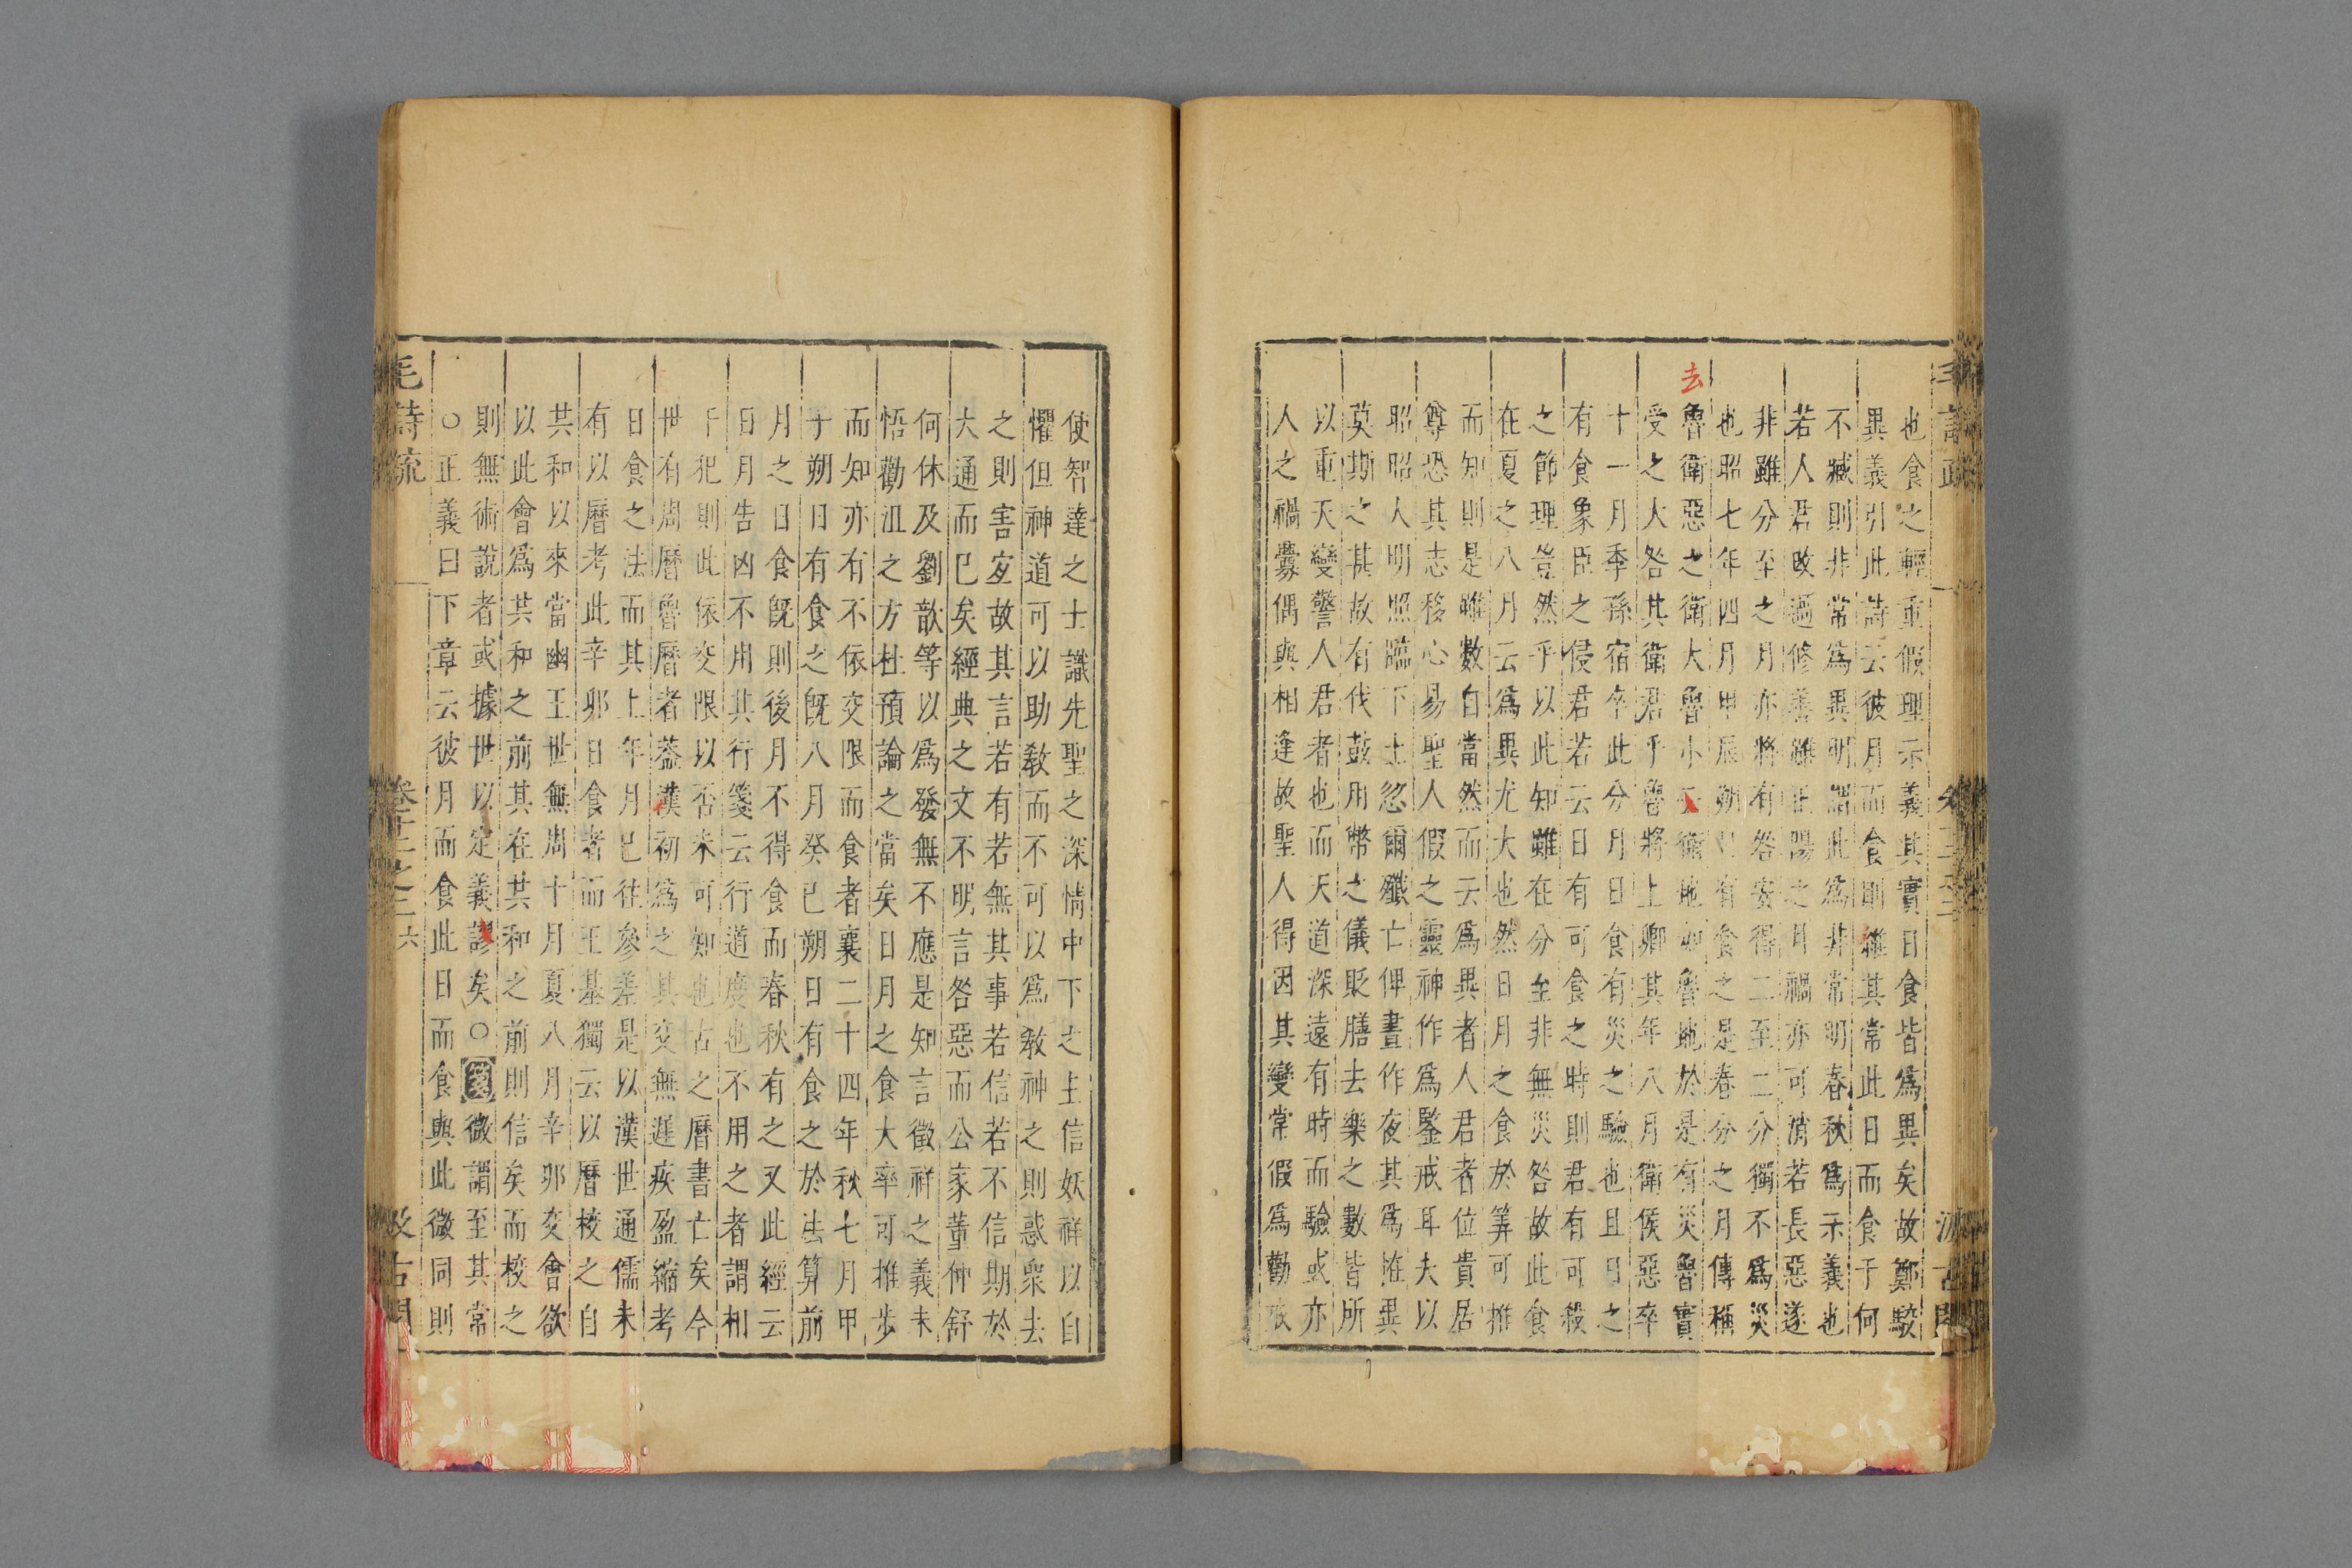 也食之輕重假理示義其實日食皆爲異矣故鄭駮
異義引此詩云彼月而食則維其常此日而食于何
不臧則非常爲異明謂此爲非常明春秋爲示義也
若人君改過修善雖正陽之月禍亦可消若長惡遂
非雖分至之月亦將有咎安得二至二分獨不爲災
也昭七年四月甲辰朔日有食之是春分之月傳稱
魯衛惡之衛大魯小 衛地如魯地於是有災魯實
受之大咎其衛君乎魯將上卿其年八月衛侯惡卒
十一月季孫宿卒此分月日食有災之驗也且日之
有食象臣之侵君若云日有可食之時則君有可殺
之節理豈然乎以此知雖在分至非無災咎故此食
在夏之八月云爲異尤大也然日月之食於筭可推
而知則是雖數自當然而云爲異者人君者位貴居
尊恐其志移心易聖人假之靈神作爲鑒戒耳夫以
昭昭大明照臨下土忽爾殲亡俾晝作夜其爲恠異
莫斯之甚故有伐鼓用幣之儀貶膳去樂之數皆所
以重天變警人君者也而天道深遠有時而驗或亦
人之禍釁偶與相逢故聖人得因其變常假爲勸戒
去
汲古閣
使智達之士識先聖之深情中下之主信妖祥以自
懼但神道可以助敎而不可以爲敎神之則惑衆去
之則害宜故其言若有若無其事若信若不信期於
大通而巳矣經典之文不明言咎惡而公家董仲舒
何休及劉歆等以爲發無不應是知言徵祥之義未
悟勸沮之方杜預論之當矣日月之食大率可推步
而知亦有不依交限而食者襄二十四年秋七月甲
子朔日有食之旣八月癸巳朔日有食之於法算前
月之日食旣則後月不得食而春秋有之又此經云
日月告凶不用其行箋云行道度也不用之者謂相
干犯則此依交限以否未可知也古之曆書亡矣今
世有周曆魯曆者葢漢初爲之其交無遲疾盈縮考
日食之法而其上年月已往參差是以漢世通儒未
有以曆考此辛卯日食者而王基獨云以曆校之自
共和以來當幽王世無周十月夏八月辛卯交會欲
以此會爲共和之前其在共和之前則信矣而校之
則無術說者或據世以定義謬矣○箋微謂至其常
○正義曰下章云彼月而食此日而食與此微同則
毛詩疏
卷十二之二
六
汲古閣